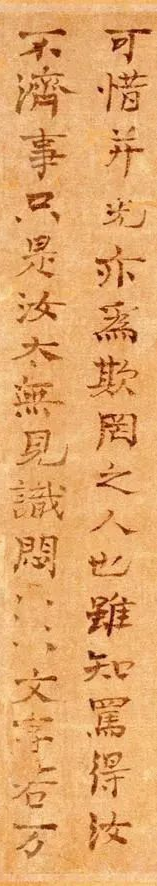 可惜并光亦爲欺罔之人也雖知罵得汝
不濟事只是汝太無見識悶〻〻文字若万